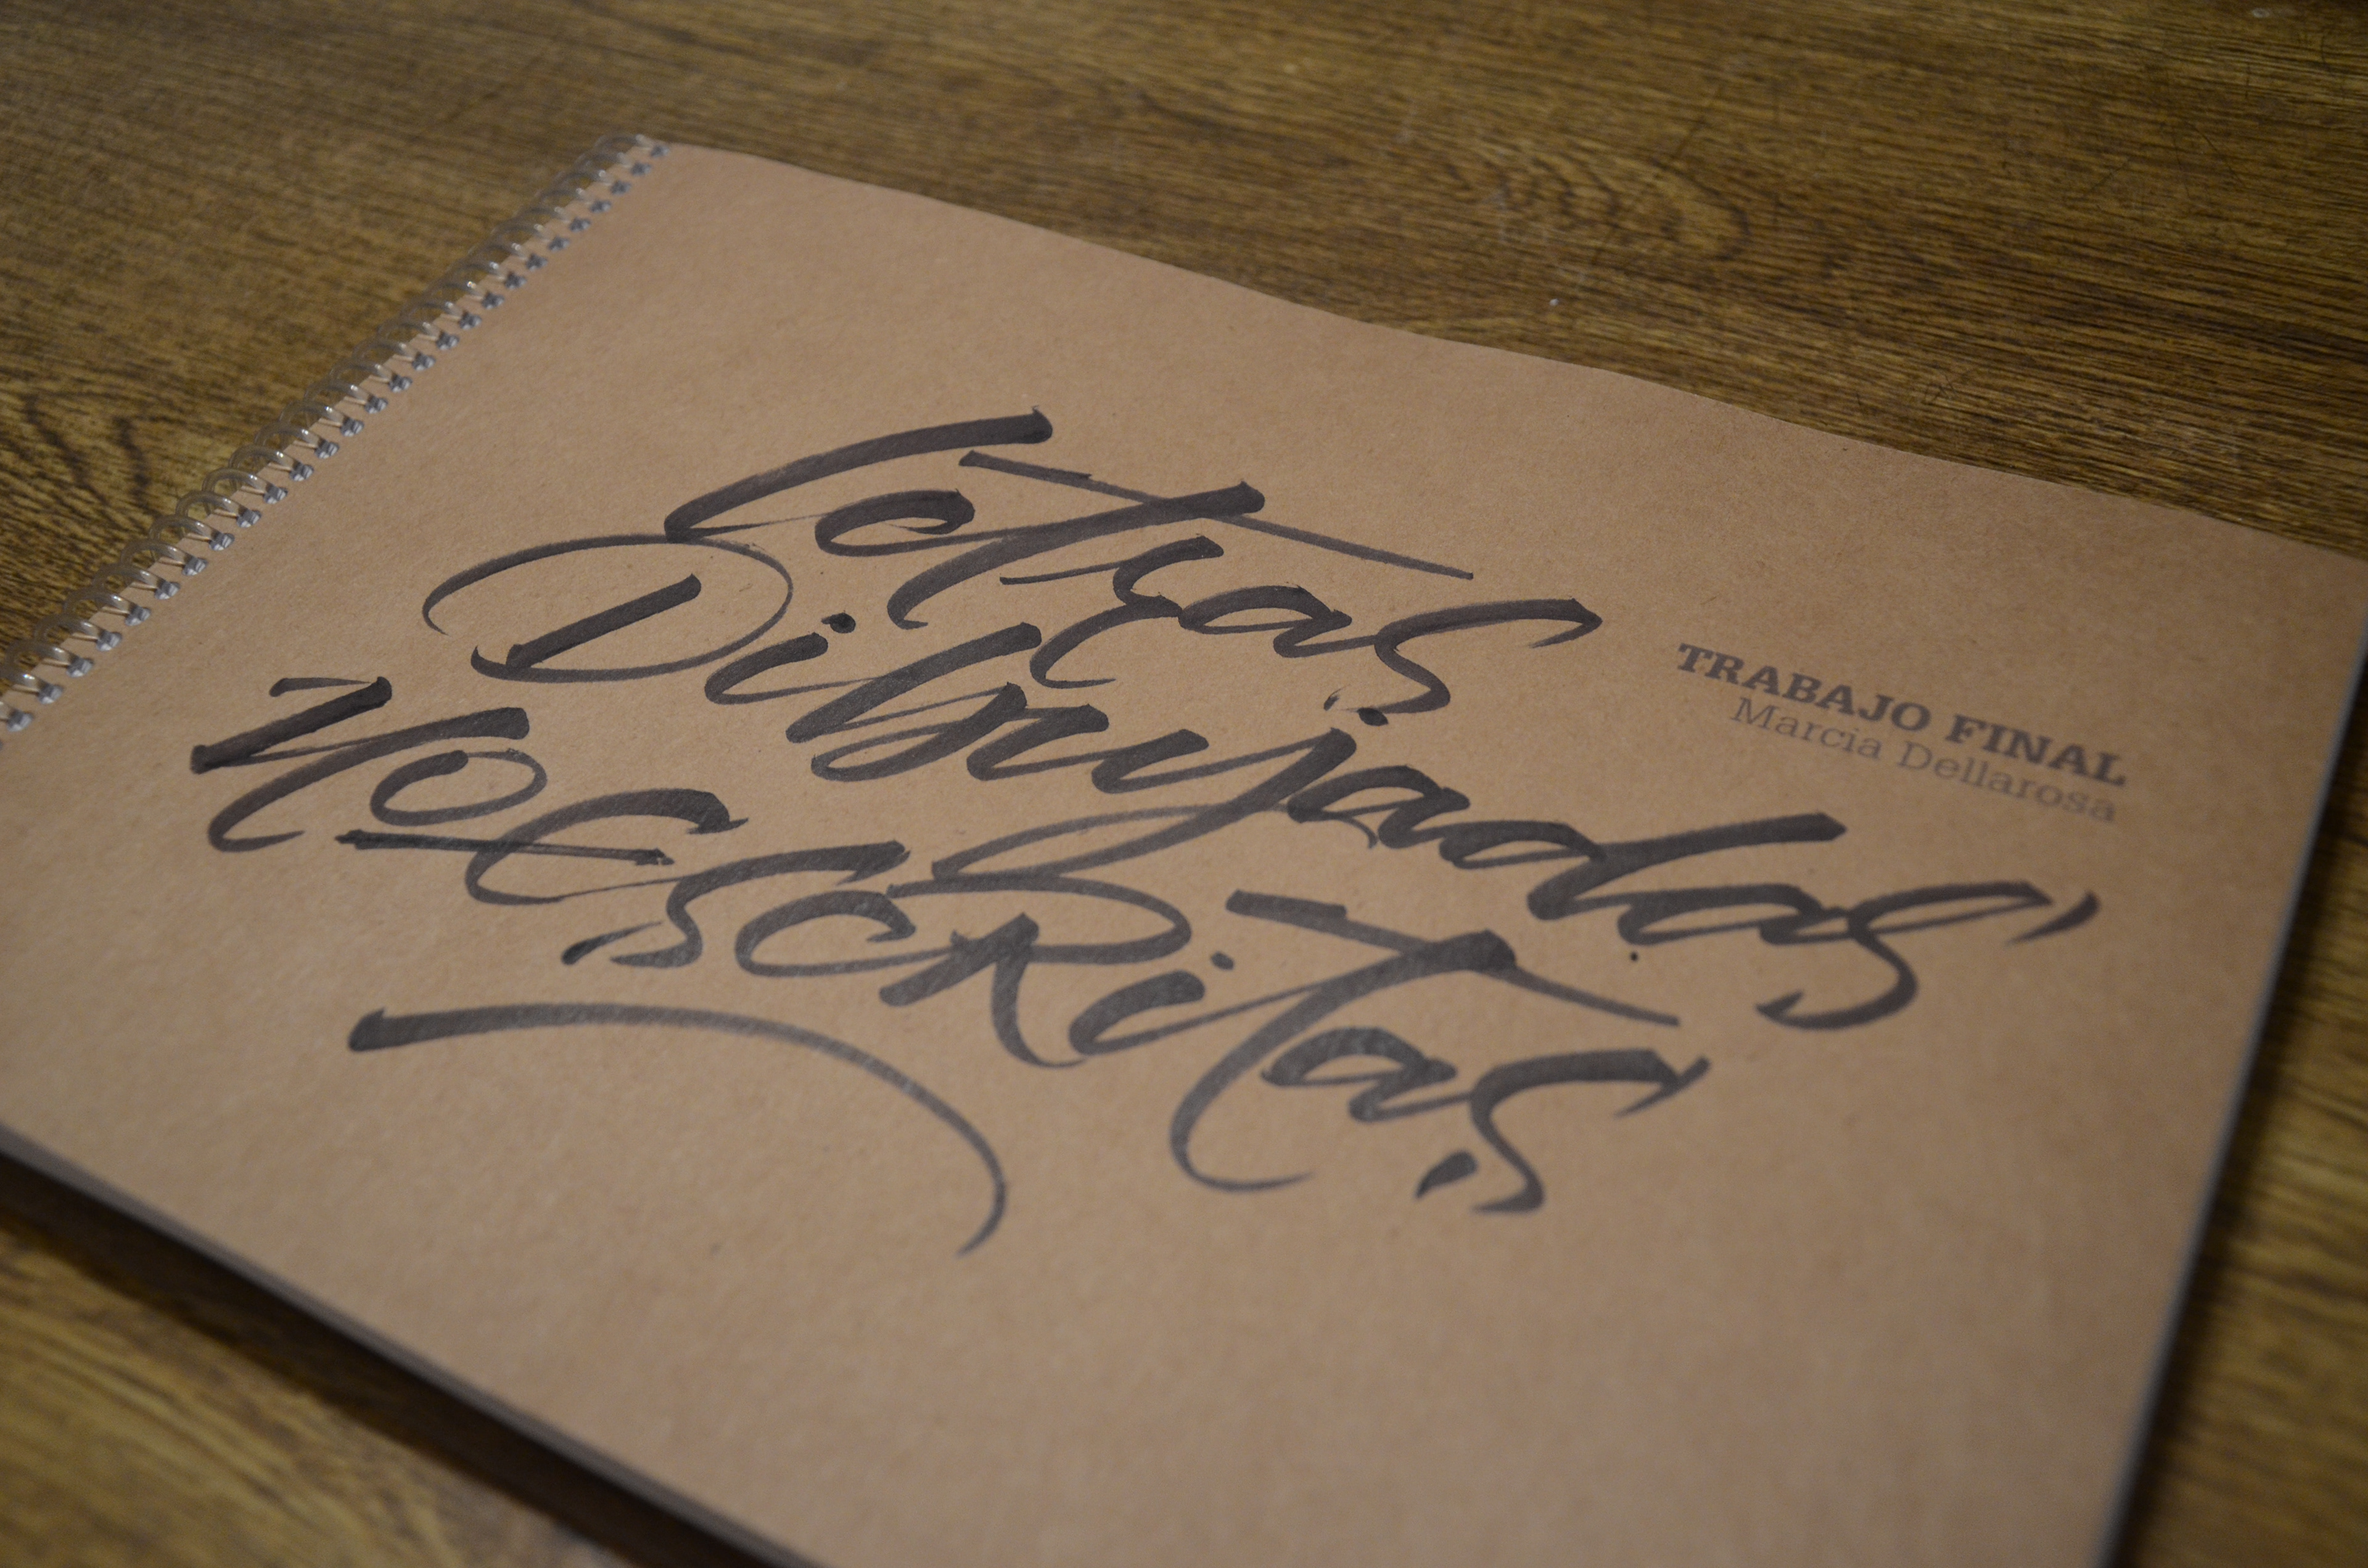 Letras
Dibujadas
no Escritas
TRABAJO FINAL
Marcia Dellarosa